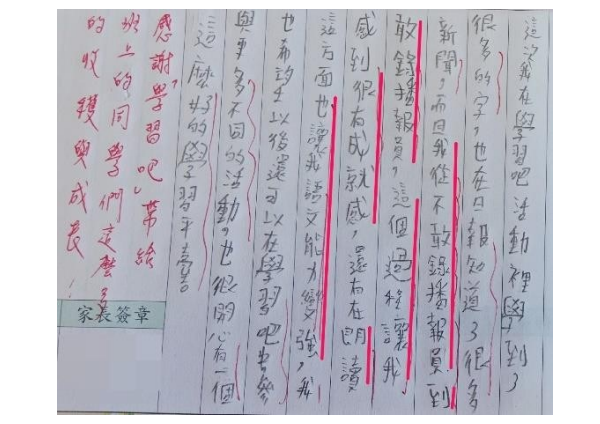 這次我在學習吧活動裡學到了
很多的字,也在日報知道了很多
新聞,而且我從不敢錄播報員到
敢錄播報員,這個過程讓我
感到很有成就感,還有在朗讀
這方面也讓我語文能力變強,我
也希望以後還可以在學習吧參
與更多不同的活動,也很開心有一個
這麼好的學習平臺。
感謝"學習吧"帶給
班上的同學們這麼多
的收穫與成長!
家長簽章